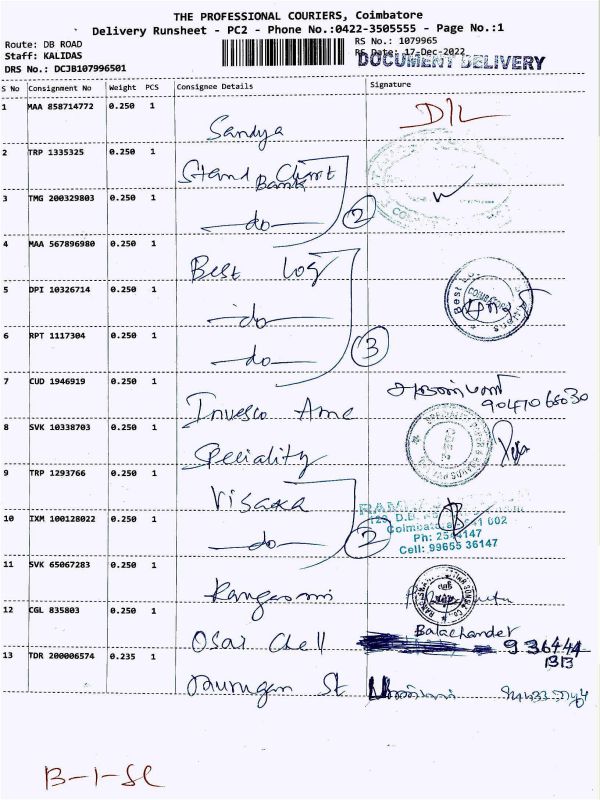 THE PROFESSIONAL COURIERS, Coimbatore
Delivery Runsheet - PC2 - Phone No.:0422-3505555 - Page No.:1
Route: DB ROAD
RS No.: 1079965
Staff: KALIDAS
RS Date: 17-Dec-2022
DOCUMENT DELIVERY
DRS No.: DCJB107996501
S No Consignment No Weight PCS Consignee Details Signature
1 MAA 858714772 0.250 1 Sandya D/L
2 TRP 1335325 0.250 1 Stand Chart
Bank
3 TMG 200329803 0.250 1 -do- 2
4 MAA 567896980 0.250 1 Best Log
5 DPI 10326714 0.250 1 -do-
6 RPT 1117304 0.250 1 -do- 3
7 CUD 1946919 0.250 1 Invesco Amc 9047068030
8 SVK 10338703 0.250 1 Speciality
9 TRP 1293766 0.250 1 Visaka
10 IXM 100128022 0.250 1 -do- 2
Coimbatore 641 002
Ph: 2544147
Cell: 99655 36147
11 SVK 65067283 0.250 1 Rangasami
12 CGL 835803 0.250 1 Osar Chell Balachander 936444
1313
13 TDR 200006574 0.235 1 Murugan St
B-1-SL